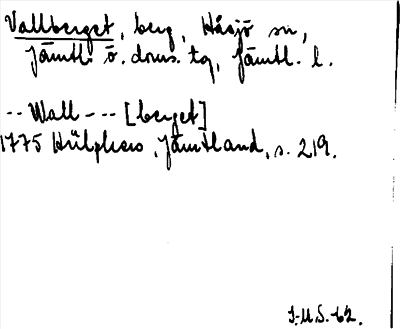 Vallberget, berg, Håsjö sn,
Jämtl. ö. doms. tg, Jämtl. l.
-- Wall --- [berget]
1775 Hülphers, Jämtland, s. 219.
J.M.S. -62.